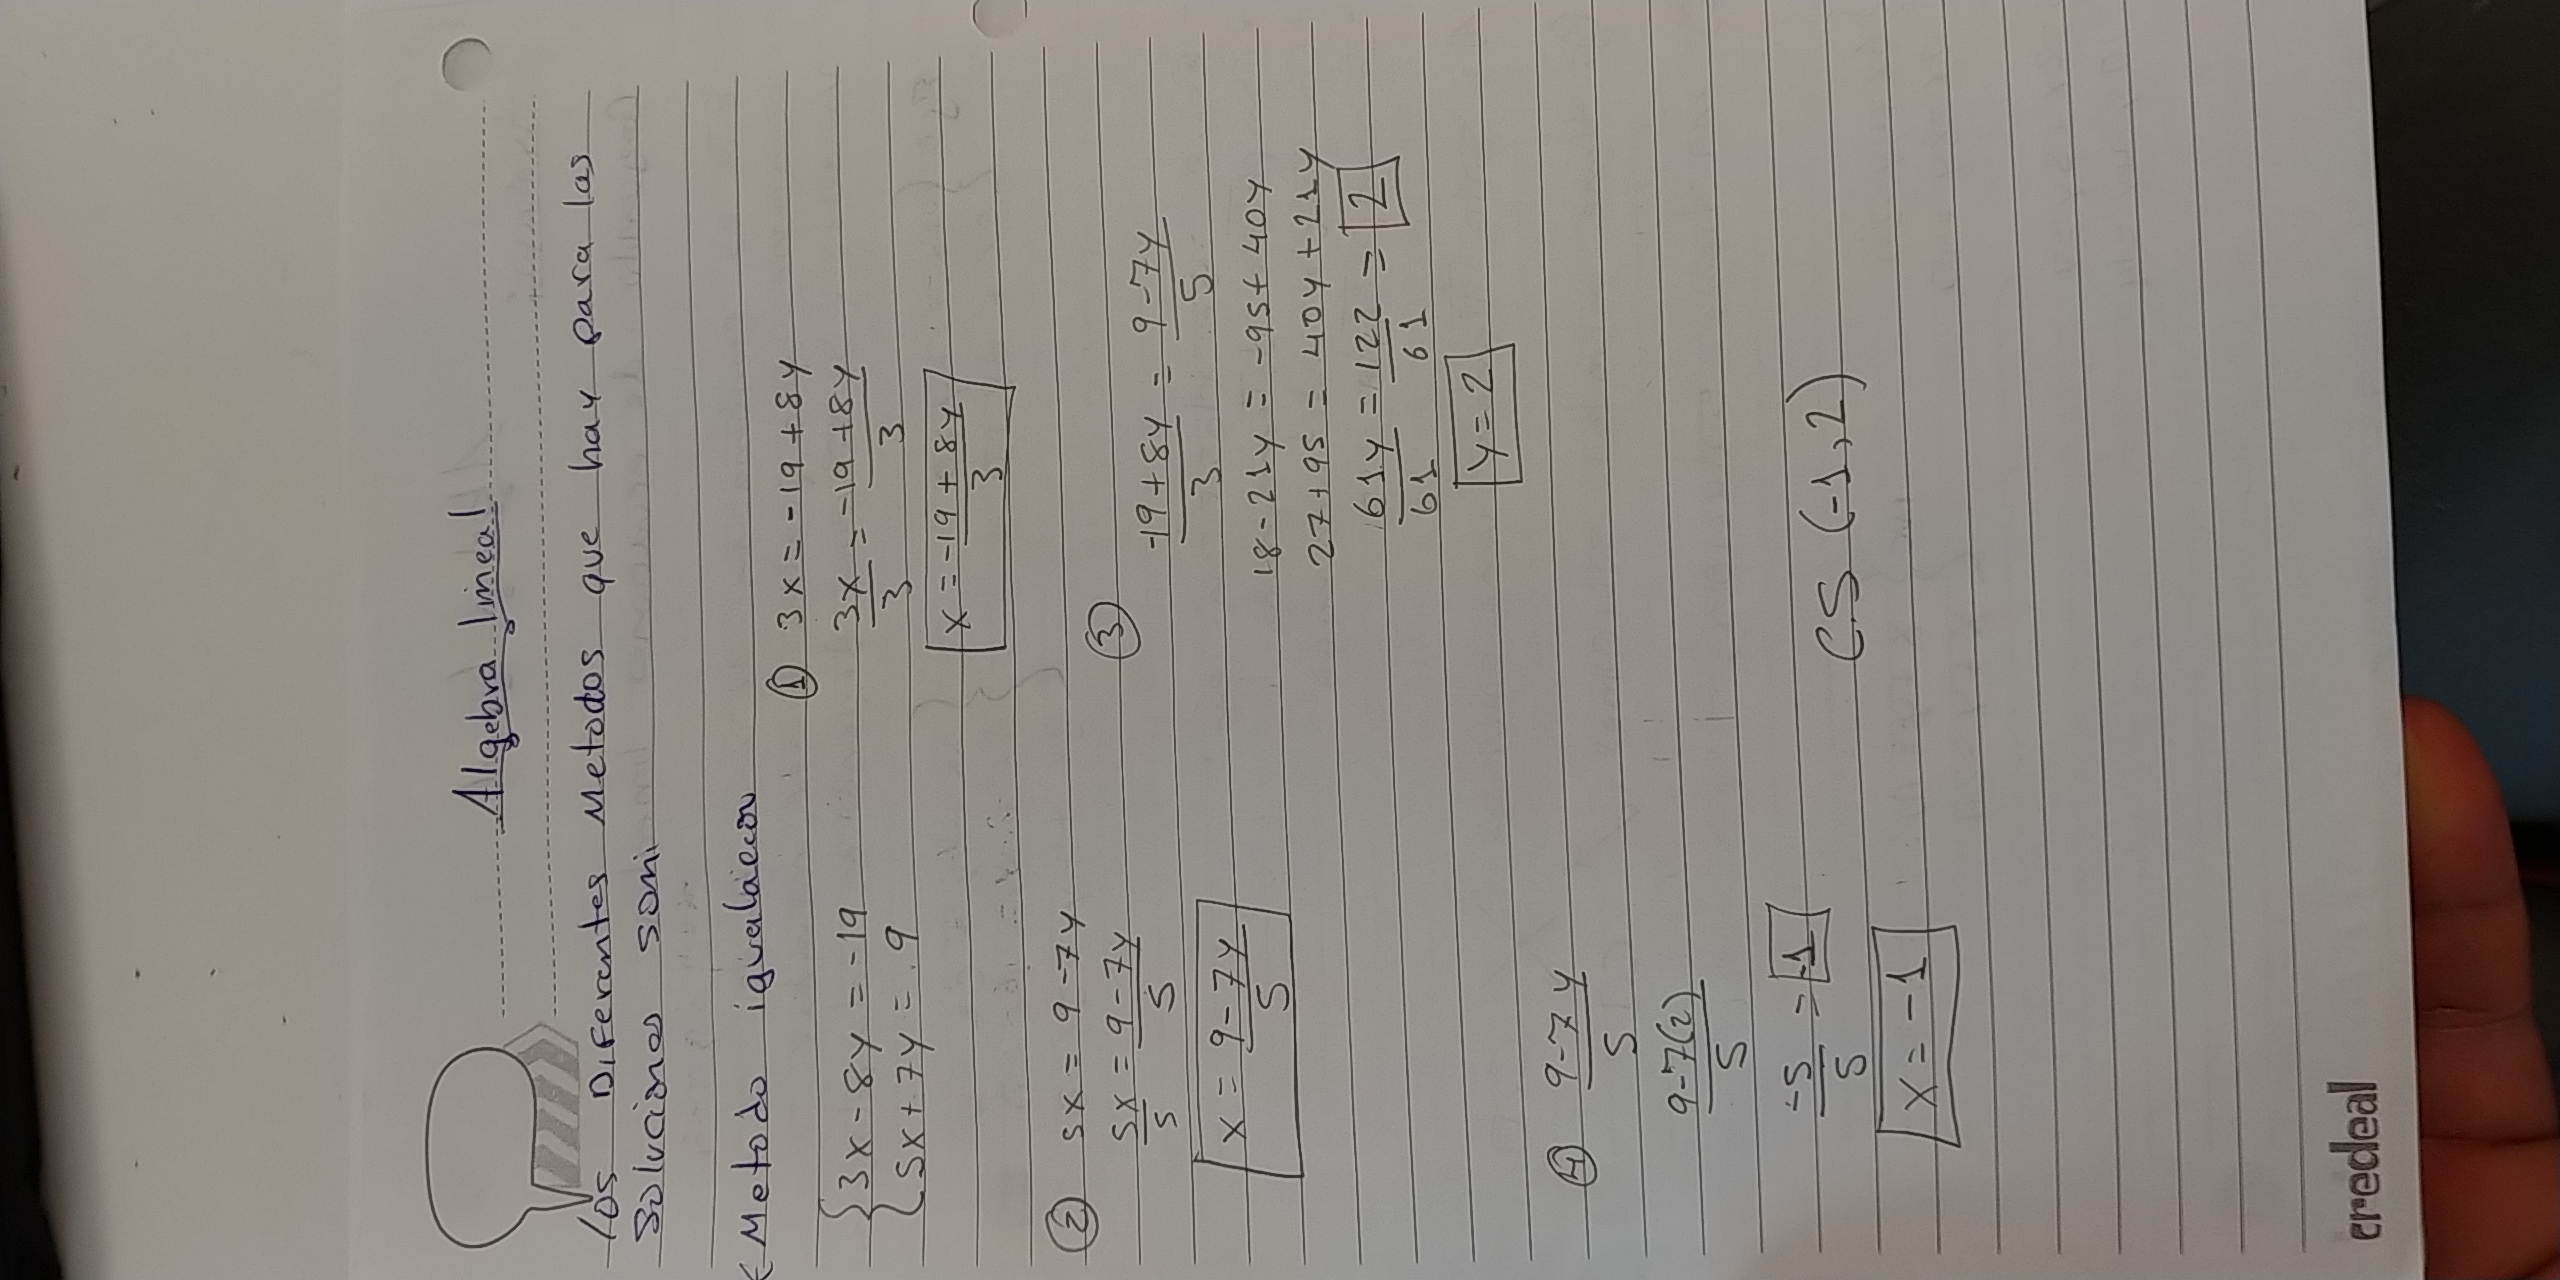 Algebra lineal
los Diferentes Metodos que hay para las
Soluciones son:
Metodo igualaecon
{3x - 8y = -19
5x + 7y = 9
① 3x = -19 + 8y
3x/3 = -19 + 8y/3
x = -19 + 8y/3
② 5x = 9 - 7y
5x/5 = 9 - 7y/5
x = 9 - 7y/5
③
-19 + 8y/3 = 9 - 7y/5
18 - 21y = -95 + 40y
27 + 95 = 40y + 21y
61y/61 = 122/61 = 2
y = 2
④ 9 - 7y/5
9 - 7(2)/5
-5/5 = -1
x = -1
C.S (-1, 2)
credeal